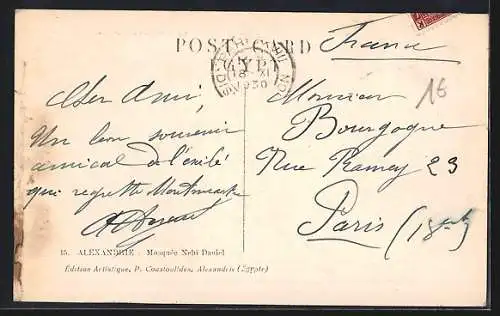 POST CARD
EGYPT
France
16
Cher Ami,
Un bon souvenir
amical de l'exilé
qui regrette Montmartre
Monsieur
Bourgogne
Rue Ramey 23
Paris (18
15. ALEXANDRIE : Mosquée Nebi Daniel
Édition Artistique, P. Coustoulides, Alexandrie (Égypte)